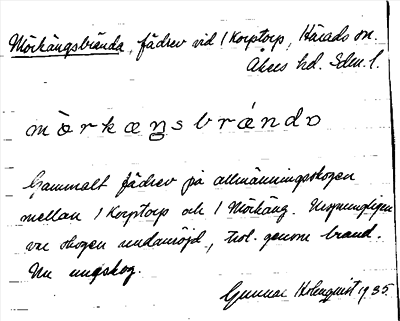 Mörkängsbrända, fädrev vid 1 Korptorp, Härads sn.
Åkers hd. Sdm. l.
mörkæŋsbrǽnda
Gammalt fädrev på allmänningsskogen
mellan 1 Korptorp och 1 Mörkäng. Ursprungligen
var skogen undanröjd, trol. genom brand.
Nu ungskog.
Gunnar Holmqvist 1935